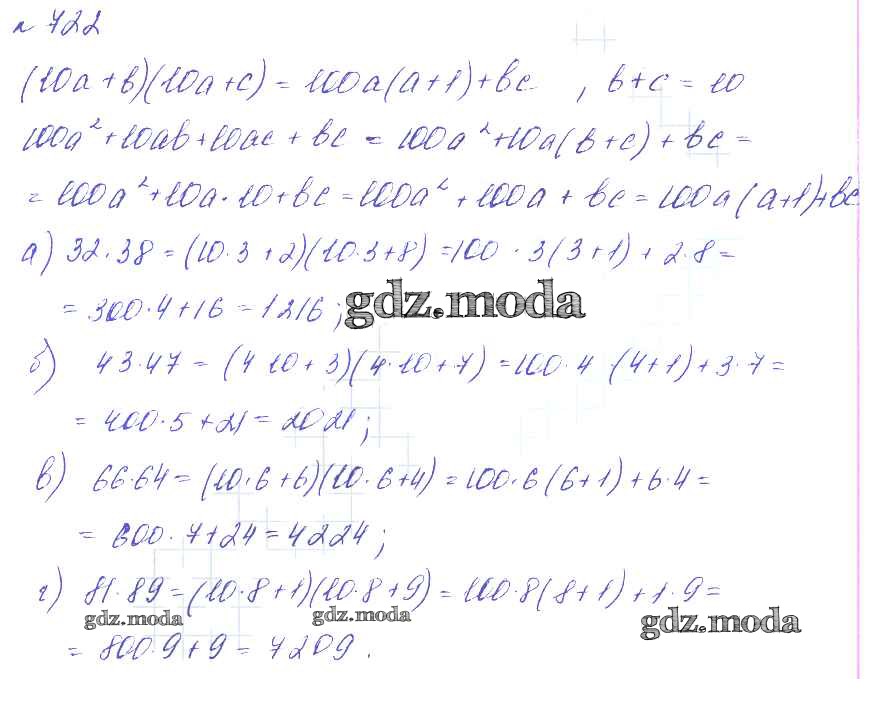 № 722
(10a + b)(10a + c) = 100a(a + 1) + bc , b + c = 10
100a² + 10ab + 10ac + bc = 100a² + 10a(b + c) + bc =
= 100a² + 10a · 10 + bc = 100a² + 100a + bc = 100a(a + 1) + bc
а) 32 · 38 = (10 · 3 + 2)(10 · 3 + 8) = 100 · 3(3 + 1) + 2 · 8 =
= 300 · 4 + 16 = 1216 ; gdz.moda
б) 43 · 47 = (4 10 + 3)(4 · 10 + 7) = 100 · 4 (4 + 1) + 3 · 7 =
= 400 · 5 + 21 = 2021 ;
в) 66 · 64 = (10 · 6 + 6)(10 · 6 + 4) = 100 · 6(6 + 1) + 6 · 4 =
= 600 · 7 + 24 = 4224 ;
г) 81 · 89 = (10 · 8 + 1)(10 · 8 + 9) = 100 · 8(8 + 1) + 1 · 9 =
gdz.moda gdz.moda gdz.moda
= 800 · 9 + 9 = 7209 .